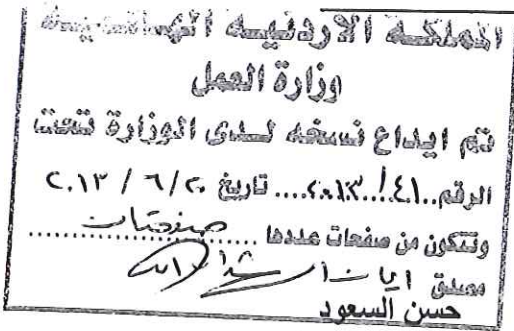 المملكة الاردنية الهاشمية
وزارة العمل
تم ايداع نسخه لدى الوزارة تحت
الرقم ..٤١/٢٠١٣.... تاريخ ٢٠/٦/٢٠١٣
وتتكون من صفحات عددها صفحتان
مصدق
حسن السعود